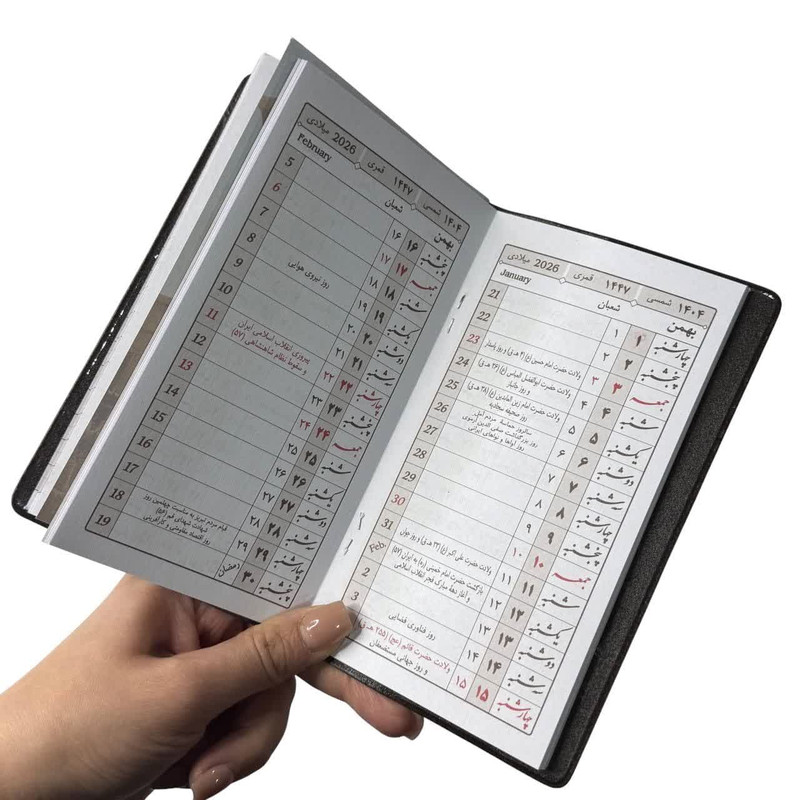 ۱۴۰۴ شمسی ۱۴۴۷ قمری 2026 میلادی
بهمن شعبان January
چهارشنبه ۱ ۱ 21
پنجشنبه ۲ ۲ 22
جمعه ۳ ۳ ولادت حضرت امام حسین (ع) (۴ ه‍.ق) و روز پاسدار 23
شنبه ۴ ۴ ولادت حضرت ابوالفضل العباس (ع) (۲۶ ه‍.ق) 24
و روز جانباز
یکشنبه ۵ ۵ ولادت حضرت امام زین العابدین (ع) (۳۸ ه‍.ق) 25
روز صحیفه سجادیه
دوشنبه ۶ ۶ سالروز حماسه مردم آمل 26
روز بزرگداشت صفی الدین ارموی
روز آواها و نواهای ایرانی
سه‌شنبه ۷ ۷ 27
چهارشنبه ۸ ۸ 28
پنجشنبه ۹ ۹ 29
جمعه ۱۰ ۱۰ 30
شنبه ۱۱ ۱۱ ولادت حضرت علی اکبر (ع) (۳۳ ه‍.ق) و روز جوان 31
یکشنبه ۱۲ ۱۲ بازگشت حضرت امام خمینی (ره) به ایران (۵۷) Feb
و آغاز دهه مبارک فجر انقلاب اسلامی
دوشنبه ۱۳ ۱۳ 2
سه‌شنبه ۱۴ ۱۴ روز فناوری فضایی 3
چهارشنبه ۱۵ ۱۵ ولادت حضرت قائم (عج) (۲۵۵ ه‍.ق)
و روز جهانی مستضعفان
۱۴۰۴ شمسی ۱۴۴۷ قمری 2026 میلادی
بهمن شعبان February
پنجشنبه ۱۶ ۱۶ 5
جمعه ۱۷ ۱۷ 6
شنبه ۱۸ ۱۸ 7
یکشنبه ۱۹ ۱۹ روز نیروی هوایی 8
دوشنبه ۲۰ ۲۰ 9
سه‌شنبه ۲۱ ۲۱ 10
چهارشنبه ۲۲ ۲۲ پیروزی انقلاب اسلامی ایران 11
و سقوط نظام شاهنشاهی (۵۷)
پنجشنبه ۲۳ ۲۳ 12
جمعه ۲۴ ۲۴ 13
شنبه ۲۵ ۲۵ 14
یکشنبه ۲۶ ۲۶ 15
دوشنبه ۲۷ ۲۷ 16
سه‌شنبه ۲۸ ۲۸ 17
چهارشنبه ۲۹ ۲۹ قیام مردم تبریز به مناسبت چهلمین روز 18
شهادت شهدای قم (۵۶)
روز اقتصاد مقاومتی و کارآفرینی
پنجشنبه ۳۰ ۱ رمضان 19